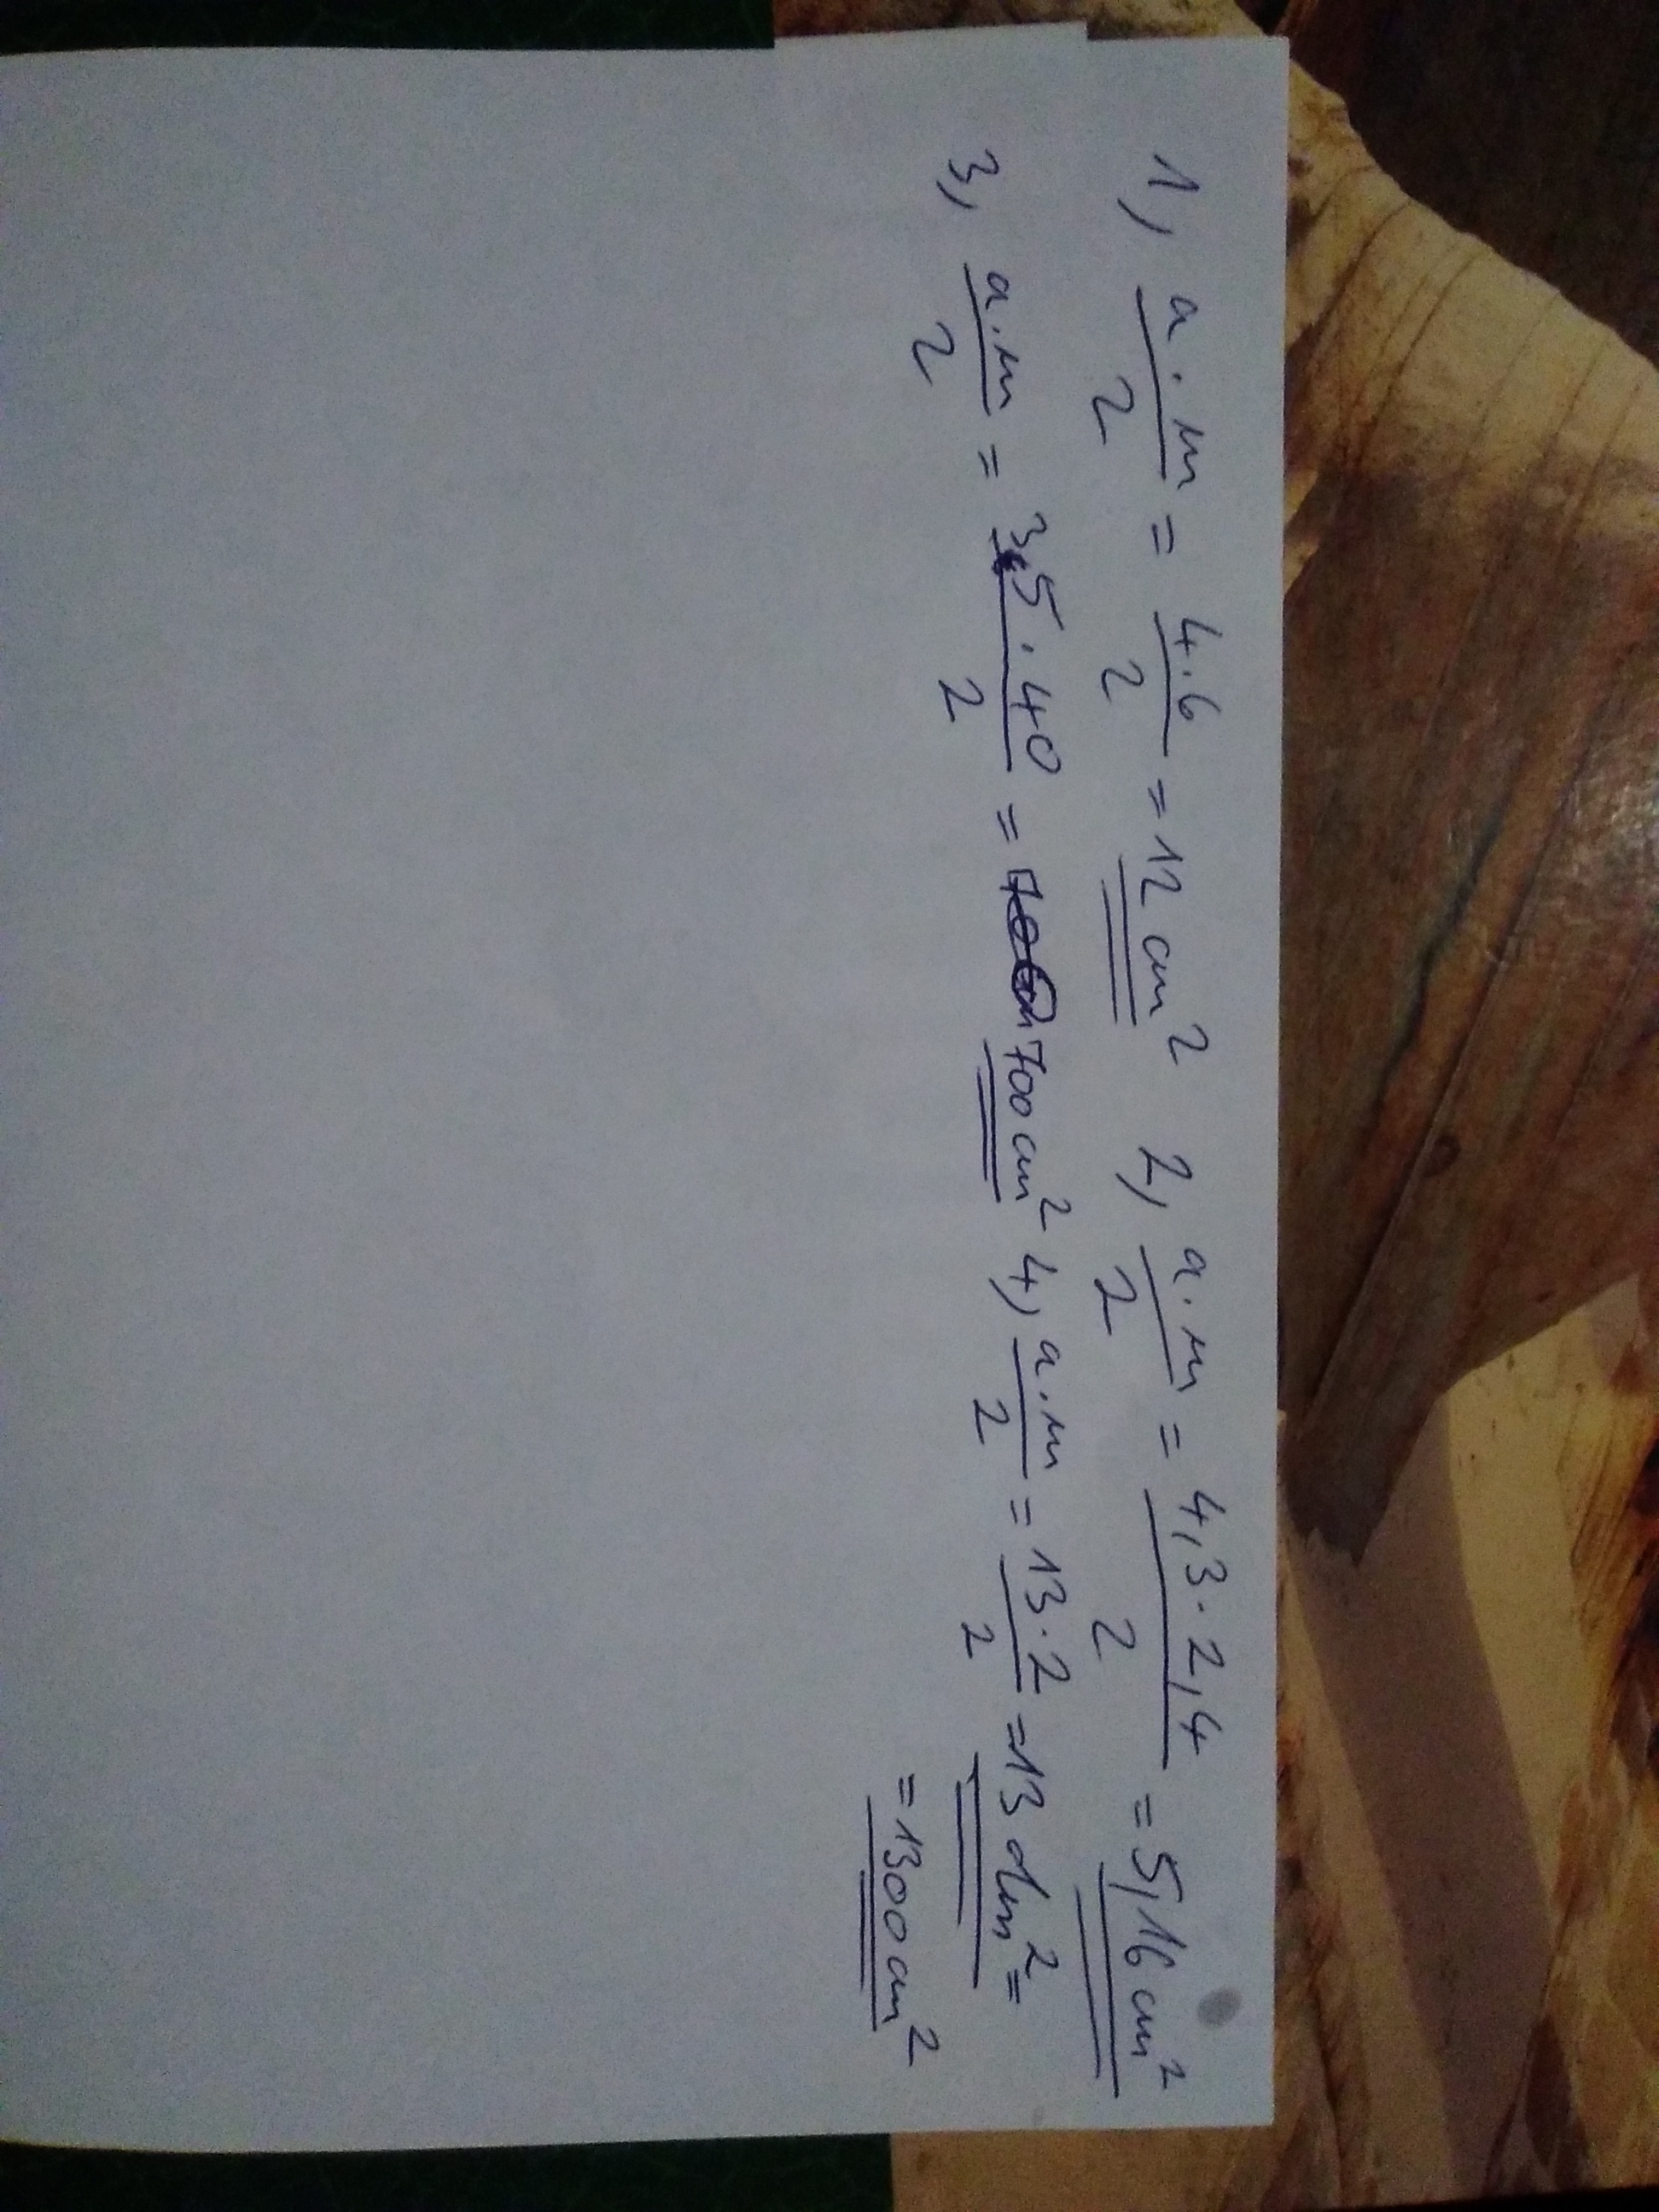 1, a·m/2 = 4·6/2 = 12 cm² 2, a·m/2 = 4,3·2,4/2 = 5,16 cm²
3, a·m/2 = 3,5·40/2 = 700 cm² 4, a·m/2 = 13·2/2 = 13 dm² =
= 1300 cm²